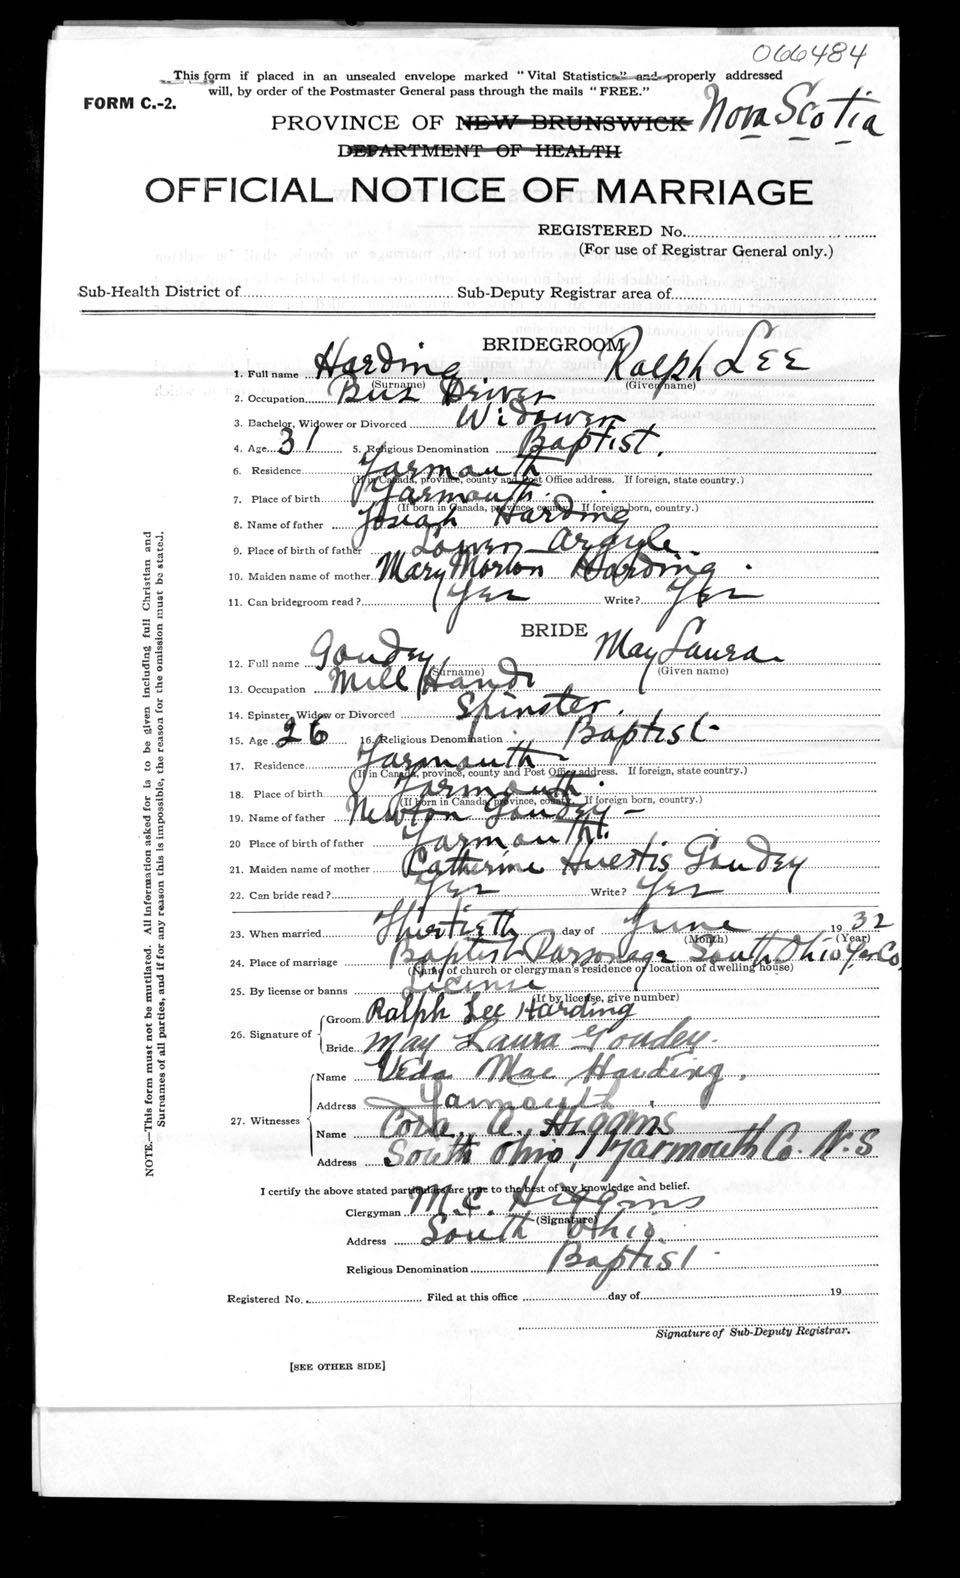 066484
This form if placed in an unsealed envelope marked "Vital Statistics" and properly addressed
will, by order of the Postmaster General pass through the mails "FREE."
FORM C.-2.
PROVINCE OF NEW BRUNSWICK Nova Scotia
DEPARTMENT OF HEALTH
OFFICIAL NOTICE OF MARRIAGE
REGISTERED No.
(For use of Registrar General only.)
Sub-Health District of Sub-Deputy Registrar area of
BRIDEGROOM
1. Full name Harding Ralph Lee
(Surname) (Given name)
2. Occupation Bus Driver
3. Bachelor, Widower or Divorced Widower
4. Age 31 5. Religious Denomination Baptist.
6. Residence Yarmouth
(If in Canada, province, county and Post Office address. If foreign, state country.)
7. Place of birth Yarmouth.
(If born in Canada, province, county. If foreign born, country.)
8. Name of father Josiah Harding
9. Place of birth of father Lower Argyle.
10. Maiden name of mother Mary Morton Harding.
11. Can bridegroom read? Yes Write? Yes
BRIDE
12. Full name Goudey May Laura
(Surname) (Given name)
13. Occupation Mill Hand
14. Spinster, Widow or Divorced Spinster.
15. Age 26 16. Religious Denomination Baptist
17. Residence Yarmouth
(If in Canada, province, county and Post Office address. If foreign, state country.)
18. Place of birth Yarmouth.
(If born in Canada, province, county. If foreign born, country.)
19. Name of father Newton Goudey
20 Place of birth of father Yarmouth.
21. Maiden name of mother Catherine Huestis Goudey
22. Can bride read? Yes Write? Yes
23. When married Thirtieth day of June 1932
(Month) (Year)
24. Place of marriage Baptist Parsonage South Ohio Yar Co.
(Name of church or clergyman's residence or location of dwelling house)
25. By license or banns License
(If by license, give number)
26. Signature of Groom Ralph Lee Harding
Bride May Laura Goudey.
27. Witnesses Name Veda Mae Harding.
Address Yarmouth.
Name Cora. A. Higgins
Address South Ohio, Yarmouth Co. N.S
I certify the above stated particulars are true to the best of my knowledge and belief.
Clergyman M. C. Higgins
(Signature)
Address South Ohio.
Religious Denomination Baptist
Registered No. Filed at this office day of 19
Signature of Sub-Deputy Registrar.
[SEE OTHER SIDE]
NOTE.—This form must not be mutilated. All information asked for is to be given including full Christian and
Surnames of all parties, and if for any reason this is impossible, the reason for the omission must be stated.